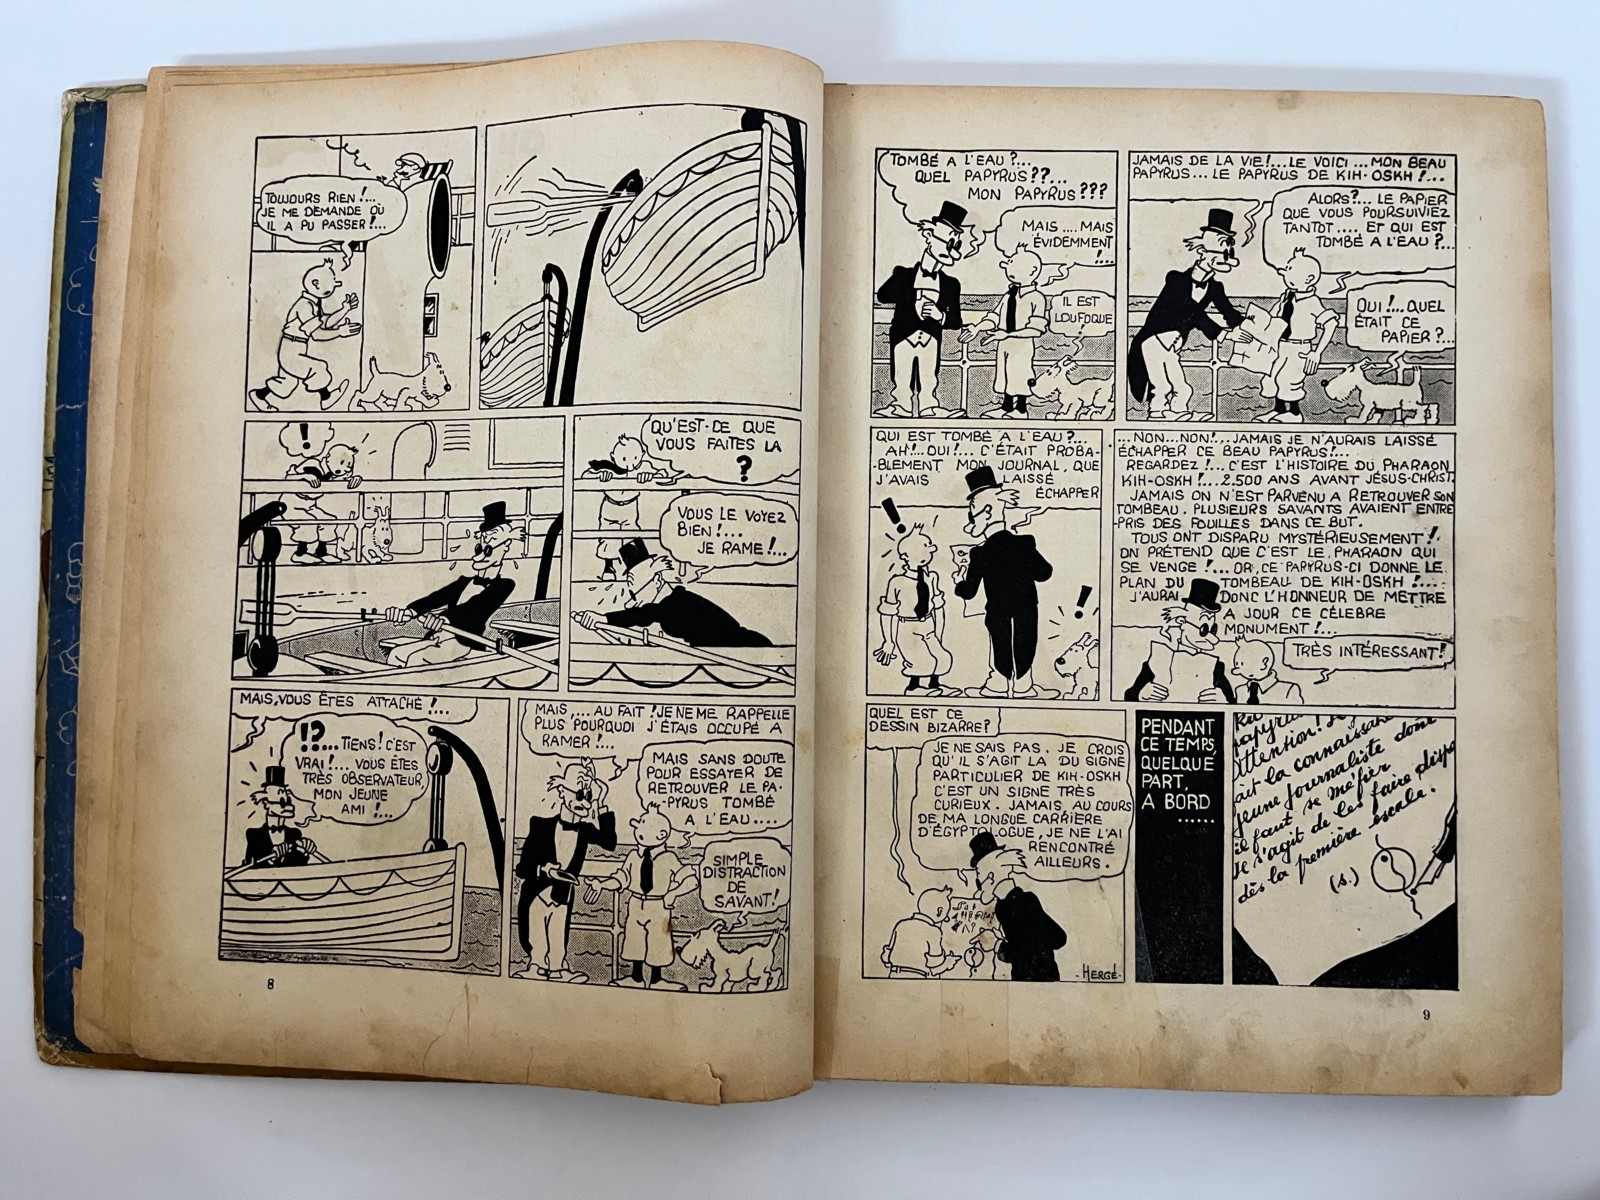 TOUJOURS RIEN !...
JE ME DEMANDE OÙ
IL A PU PASSER !...
!
QU'EST-CE QUE
VOUS FAITES LA
?
VOUS LE VOYEZ
BIEN !...
JE RAME !...
MAIS, VOUS ÊTES ATTACHÉ !...
!? ...TIENS ! C'EST
VRAI !... VOUS ÊTES
TRÈS OBSERVATEUR,
MON JEUNE
AMI !...
MAIS.... AU FAIT ! JE NE ME RAPPELLE
PLUS POURQUOI J'ÉTAIS OCCUPÉ A
RAMER !...
MAIS SANS DOUTE
POUR ESSAYER DE
RETROUVER LE PA-
-PYRUS TOMBÉ
A L'EAU....
SIMPLE
DISTRACTION
DE
SAVANT !
8
TOMBÉ A L'EAU ?...
QUEL PAPYRUS ??...
MON PAPYRUS ???
MAIS .... MAIS
ÉVIDEMMENT
!...
IL EST
LOUFOQUE
!
JAMAIS DE LA VIE !... LE VOICI ... MON BEAU
PAPYRUS... LE PAPYRUS DE KIH-OSKH !...
ALORS ?... LE PAPIER
QUE VOUS POURSUIVIEZ
TANTOT .... ET QUI EST
TOMBÉ A L'EAU ?...
OUI !... QUEL
ÉTAIT CE
PAPIER ?...
QUI EST TOMBÉ A L'EAU ?...
AH !.. OUI !... C'ÉTAIT PROBA-
-BLEMENT MON JOURNAL, QUE
J'AVAIS LAISSÉ
ÉCHAPPER
!
!
...NON...NON !... JAMAIS JE N'AURAIS LAISSÉ
ÉCHAPPER CE BEAU PAPYRUS !...
REGARDEZ !... C'EST L'HISTOIRE DU PHARAON
KIH-OSKH !... 2.500 ANS AVANT JÉSUS-CHRIST.
JAMAIS ON N'EST PARVENU A RETROUVER SON
TOMBEAU. PLUSIEURS SAVANTS AVAIENT ENTRE-
PRIS DES FOUILLES DANS CE BUT.
TOUS ONT DISPARU MYSTÉRIEUSEMENT !.
ON PRÉTEND QUE C'EST LE PHARAON QUI
SE VENGE !... OR, CE PAPYRUS-CI DONNE LE
PLAN DU TOMBEAU DE KIH-OSKH !...
J'AURAI DONC L'HONNEUR DE METTRE
A JOUR CE CÉLÈBRE
MONUMENT !...
TRÈS INTÉRESSANT !
QUEL EST CE
DESSIN BIZARRE ?
JE NE SAIS PAS. JE CROIS
QU'IL S'AGIT LA DU SIGNE
PARTICULIER DE KIH-OSKH
C'EST UN SIGNE TRÈS
CURIEUX. JAMAIS, AU COURS
DE MA LONGUE CARRIÈRE
D'ÉGYPTOLOGUE, JE NE L'AI
RENCONTRÉ
AILLEURS.
-HERGÉ-
PENDANT
CE TEMPS,
QUELQUE
PART,
A BORD
......
attention !
ait la connaissance
jeune journaliste dont
il faut se méfier
Il s'agit de les faire
dès la première escale.
(s.)
9